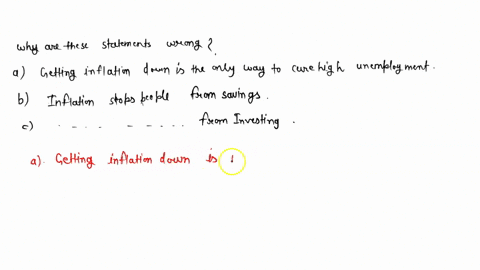 why are these statements wrong ?
a) Getting inflation down is the only way to cure high unemployment.
b) Inflation stops people from savings.
c) - - - - - - - from Investing.
a). Getting inflation down is